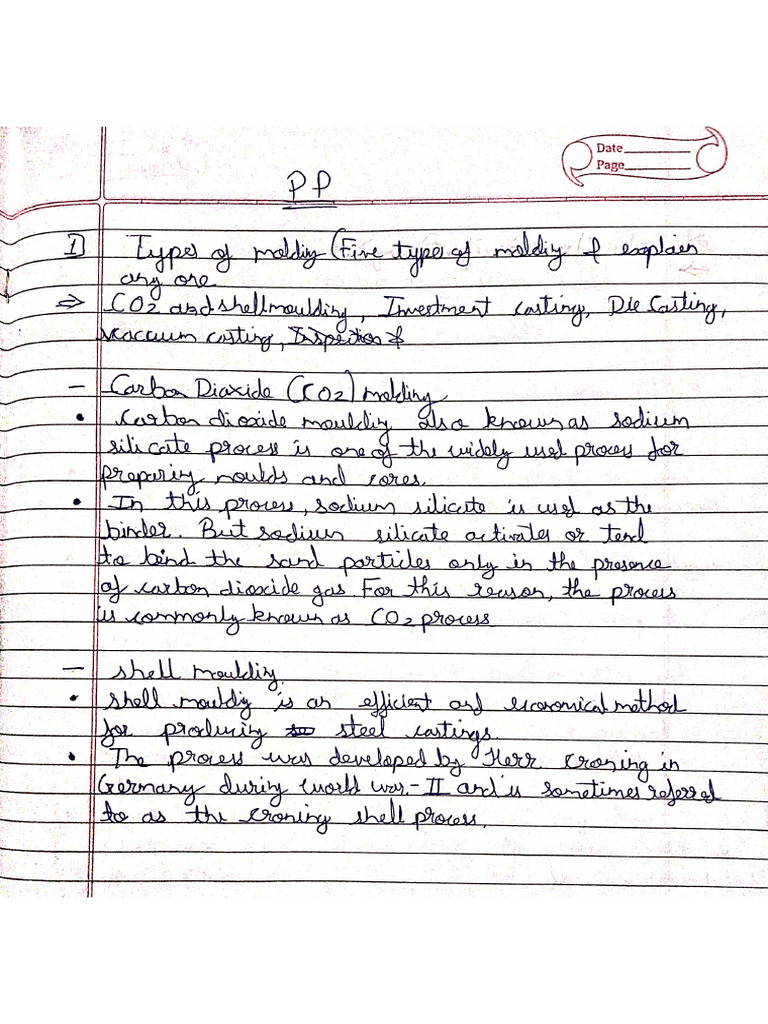 Date
Page
PP
1] Types of molding (Five types of molding & explain
any one
⇒ CO2 and shell moulding, Investment casting, Die Casting,
Vaccum casting,
– Carbon Dioxide (CO2) molding
• Carbon dioxide moulding also known as sodium
silicate process is one of the widely used process for
preparing moulds and cores.
• In this process, sodium silicate is used as the
binder. But sodium silicate activates or tend
to bind the sand particles only in the presence
of carbon dioxide gas. For this reason, the process
is commonly known as CO2 process
– Shell moulding
• Shell moulding is an efficient and economical method
for producing steel castings.
• The process was developed by Herr Croning in
Germany during world war-II and is sometimes referred
to as the croning shell process.